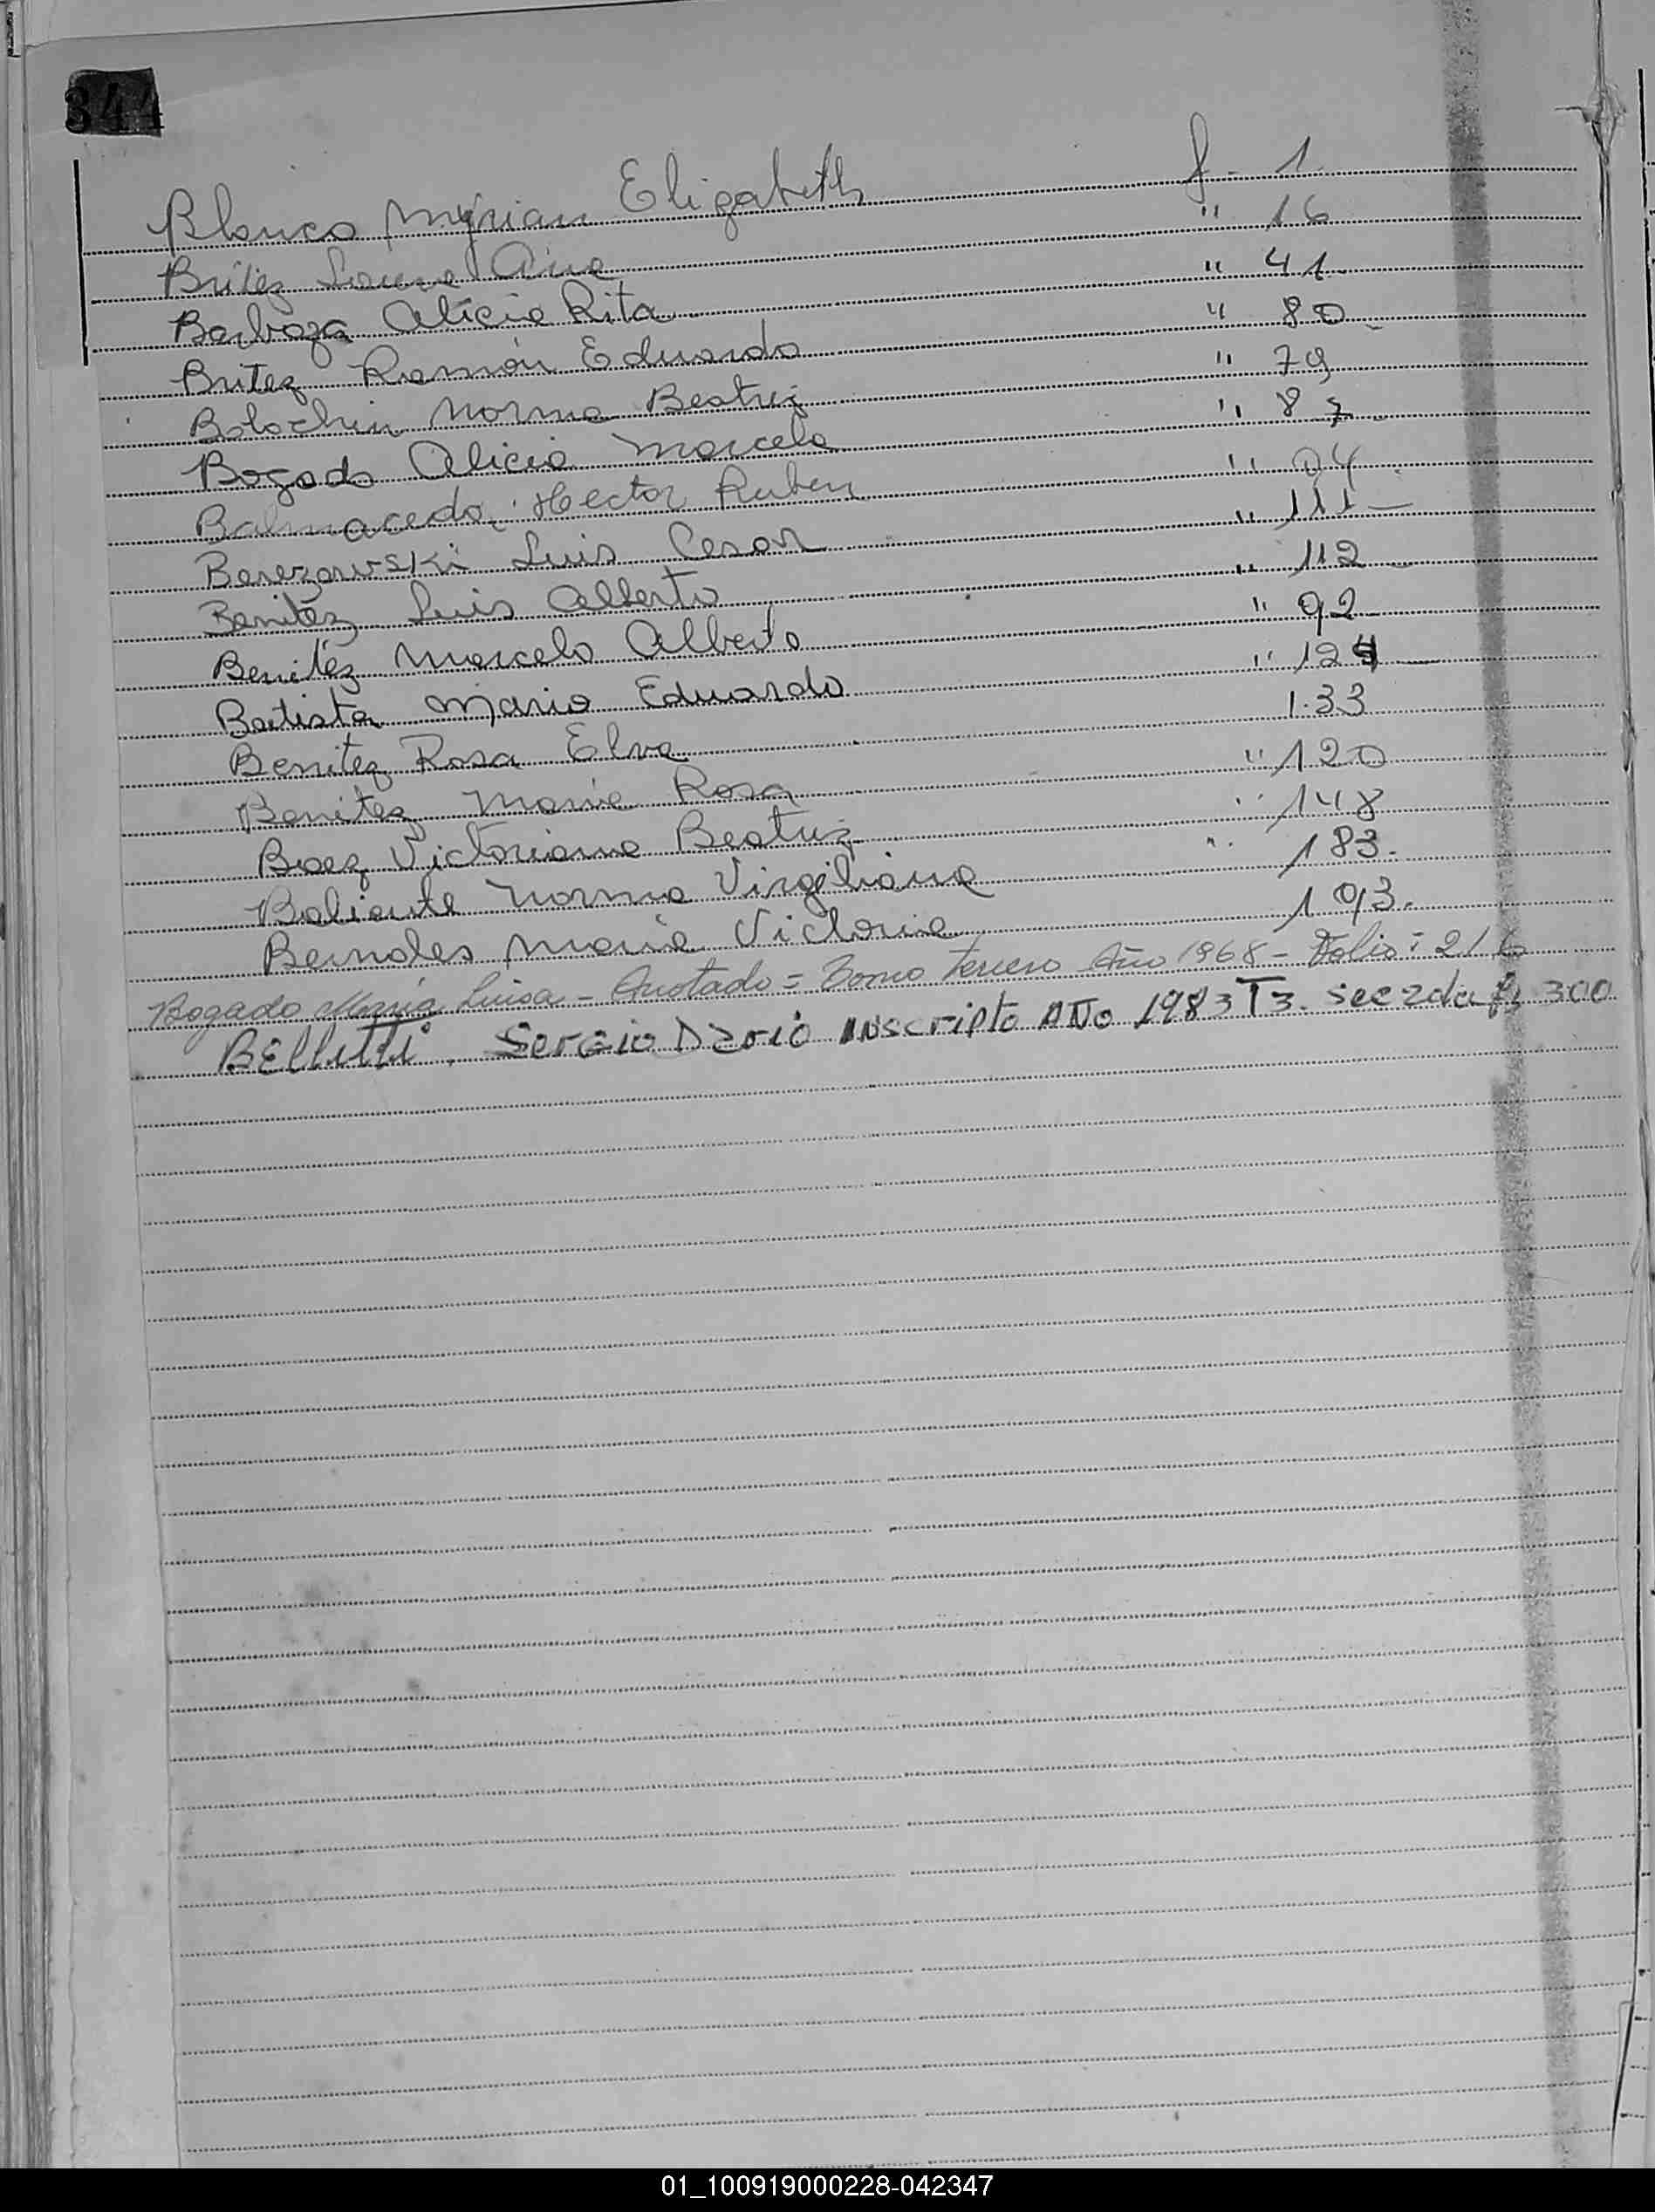 344
Blanco Myrian Elizabeth f. 1.
Britez Laura Ana " 16
Barboza Alicia Rita " 41
Britez Ramón Eduardo " 80
Bolochin Norma Beatriz " 79
Bogado Alicia Marcela " 87
Balmaceda Hector Ruben " 94
Berezowski Luis Cesar " 111
Benitéz Luis Alberto " 112
Benitéz Marcelo Alberto " 92
Batista Mario Eduardo " 124
Benitez Rosa Elva 133
Benitez Maria Rosa " 120
Baez Victoriana Beatriz " 148
Baliente Norma Virgiliana " 183.
Bernales Maria Victoria 193.
Bogado María Luisa - Anotado = Tomo Tercero Año 1968 - Folio: 216
BElluTTi, Sergio Dario inscripto Año 1983 T3. Seczda f, 300
01_100919000228-042347